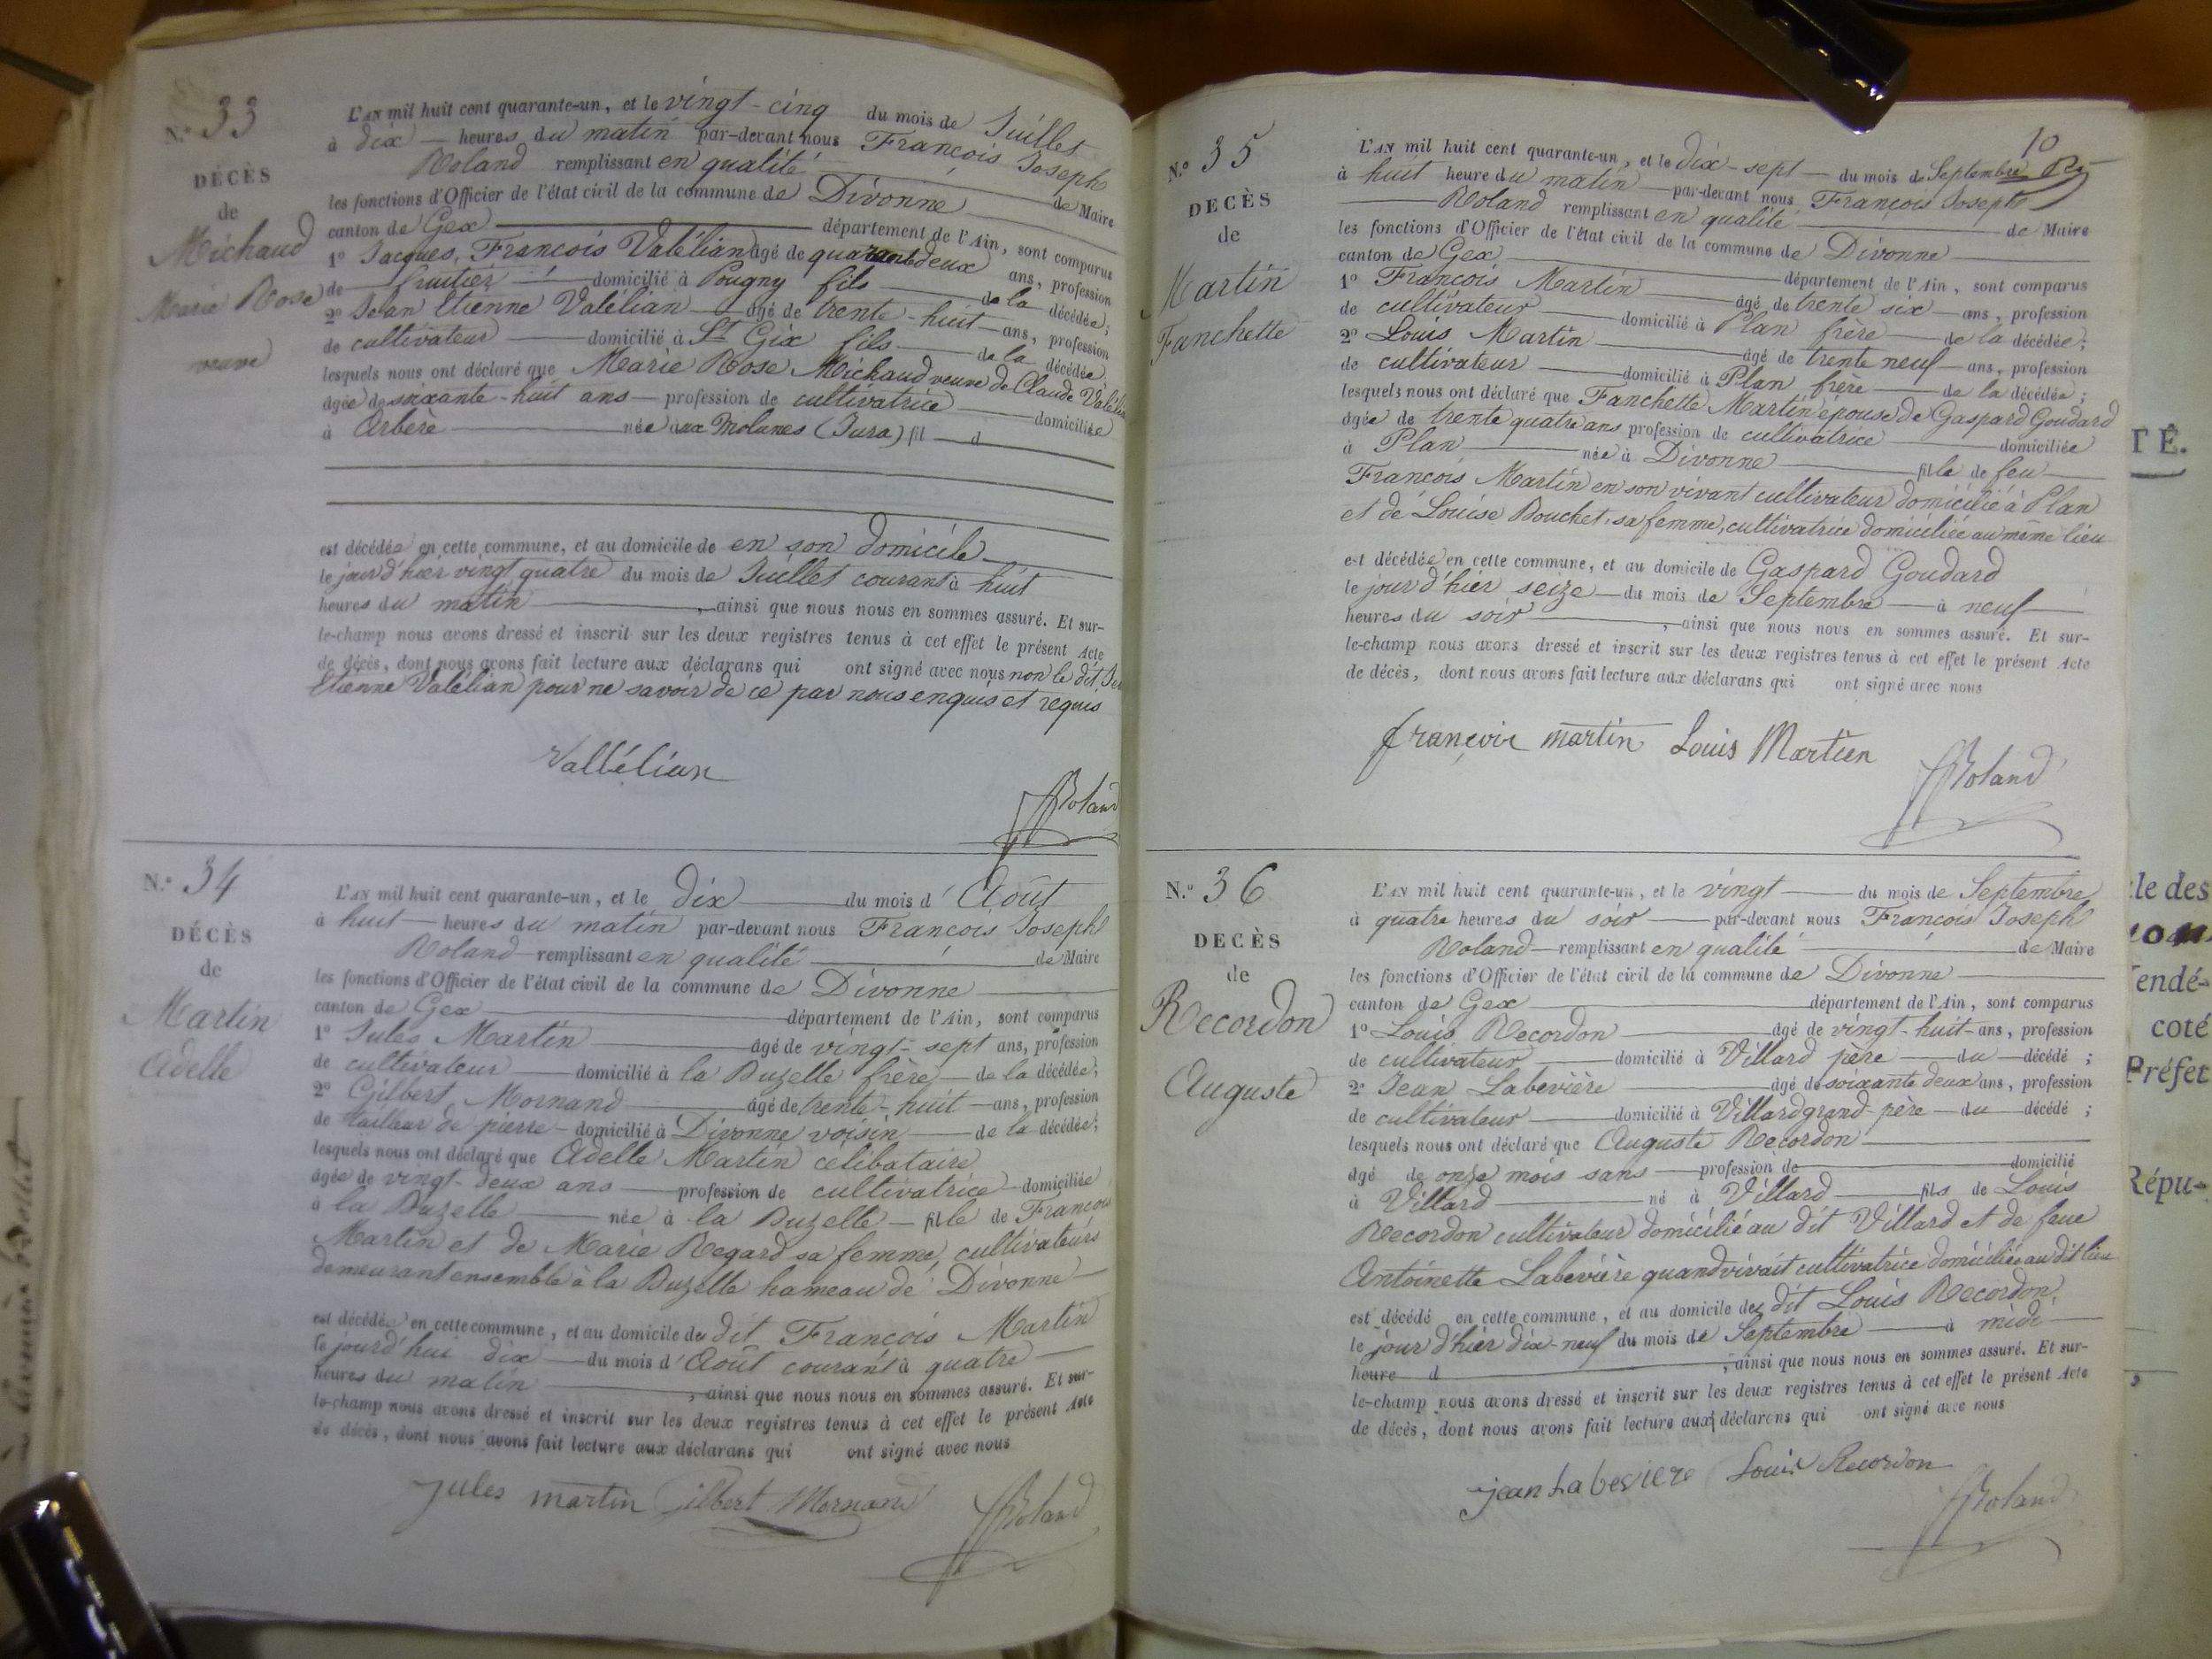 N.º 33
DÉCÈS
de
Michaud
Marie Rose
veuve
L'AN mil huit cent quarante-un, et le vingt-cinq du mois de Juillet
à dix heures du matin par-devant nous François Joseph
Roland remplissant en qualité de Maire
les fonctions d'Officier de l'état civil de la commune de Divonne
canton de Gex département de l'Ain, sont comparus
1º Jacques, François Valélian âgé de quarante deux ans, profession
de fruitier domicilié à Pougny fils de la décédée;
2º Jean Etienne Valélian âgé de trente-huit ans, profession
de cultivateur domicilié à St Gix fils de la décédée,
lesquels nous ont déclaré que Marie Rose Michaud veuve de Claude Valélian
âgée de soixante-huit ans profession de cultivatrice domiciliée
à Arbère née aux Molunes (Jura) fil d
est décédée en cette commune, et au domicile de en son domicile
le jour d'hier vingt quatre du mois de Juillet courant à huit
heures du matin, ainsi que nous nous en sommes assuré. Et sur-
le-champ nous avons dressé et inscrit sur les deux registres tenus à cet effet le présent Acte
de décès, dont nous avons fait lecture aux déclarans qui ont signé avec nous non le dit
Etienne Valélian pour ne savoir de ce par nous enquis et requis
Vallélian
FRoland
N.º 34
DÉCÈS
de
Martin
Adelle
L'AN mil huit cent quarante-un, et le dix du mois d'Août
à huit heures du matin par-devant nous François Joseph
Roland remplissant en qualité de Maire
les fonctions d'Officier de l'état civil de la commune de Divonne
canton de Gex département de l'Ain, sont comparus
1º Jules Martin âgé de vingt-sept ans, profession
de cultivateur domicilié à la Buzelle frère de la décédée;
2º Gilbert Mornand âgé de trente-huit ans, profession
de tailleur de pierre domicilié à Divonne voisin de la décédée;
lesquels nous ont déclaré que Adelle Martin célibataire
âgée de vingt-deux ans profession de cultivatrice domiciliée
à la Buzelle née à la Buzelle fille de François
Martin et de Marie Regard sa femme, cultivateurs
demeurant ensemble à la Buzelle hameau de Divonne
est décédée en cette commune, et au domicile du dit François Martin
le jourd'hui dix du mois d'Août courant à quatre
heures du matin, ainsi que nous nous en sommes assuré. Et sur-
le-champ nous avons dressé et inscrit sur les deux registres tenus à cet effet le présent Acte
de décès, dont nous avons fait lecture aux déclarans qui ont signé avec nous
Jules martin Gilbert Mornand FRoland
10
N.º 35
DÉCÈS
de
Martin
Fanchette
L'AN mil huit cent quarante-un, et le dix-sept du mois de Septembre
à huit heure du matin par-devant nous François Joseph
Roland remplissant en qualité de Maire
les fonctions d'Officier de l'état civil de la commune de Divonne
canton de Gex département de l'Ain, sont comparus
1º François Martin âgé de trente six ans, profession
de cultivateur domicilié à Plan frère de la décédée;
2º Louis Martin âgé de trente neuf ans, profession
de cultivateur domicilié à Plan frère de la décédée;
lesquels nous ont déclaré que Fanchette Martin épouse de Gaspard Goudard
âgée de trente quatre ans profession de cultivatrice domiciliée
à Plan née à Divonne fille de feu
François Martin en son vivant cultivateur domicilié à Plan
et de Louise Bouchet, sa femme, cultivatrice domiciliée au même lieu
est décédée en cette commune, et au domicile de Gaspard Goudard
le jour d'hier seize du mois de Septembre à neuf
heures du soir, ainsi que nous nous en sommes assuré. Et sur-
le-champ nous avons dressé et inscrit sur les deux registres tenus à cet effet le présent Acte
de décès, dont nous avons fait lecture aux déclarans qui ont signé avec nous
françois martin Louis Martin
FRoland
N.º 36
DECÈS
de
Recordon
Auguste
L'AN mil huit cent quarante-un, et le vingt du mois de Septembre
à quatre heures du soir par-devant nous François Joseph
Roland remplissant en qualité de Maire
les fonctions d'Officier de l'état civil de la commune de Divonne
canton de Gex département de l'Ain, sont comparus
1º Louis Recordon âgé de vingt-huit ans, profession
de cultivateur domicilié à Villard père du décédé;
2º Jean Labevière âgé de soixante deux ans, profession
de cultivateur domicilié à Villard grand-père du décédé;
lesquels nous ont déclaré que Auguste Recordon
âgé de onze mois sans profession de domicilié
à Villard né à Villard fils de Louis
Recordon cultivateur domicilié au dit Villard et de feue
Antoinette Labevière quand vivait cultivatrice domiciliée au dit lieu
est décédé en cette commune, et au domicile du dit Louis Recordon,
le jour d'hier dix-neuf du mois de Septembre à midi
heure d, ainsi que nous nous en sommes assuré. Et sur-
le-champ nous avons dressé et inscrit sur les deux registres tenus à cet effet le présent Acte
de décès, dont nous avons fait lecture aux déclarans qui ont signé avec nous
jean Labeviere Louis Recordon
FRoland
TÉ.
le des
endé-
coté
Préfet
Répu-